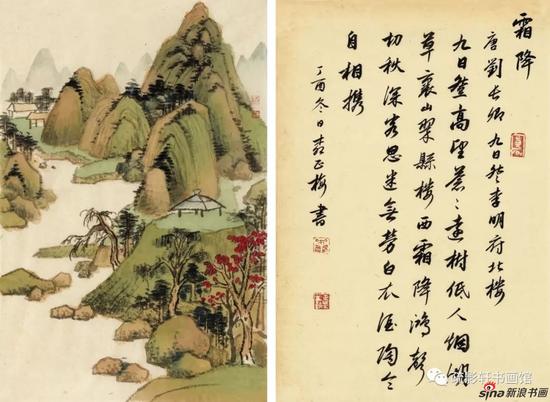 霜降
唐劉長卿 九日登李明府北樓
九日登高望蒼々遠樹低人烟湖
草裏山翠縣樓西霜降鴻聲
切秋深客思迷無勞白衣酒陶令
自相携
丁酉冬日 正梅書
疏影轩书画馆
sina新浪书画